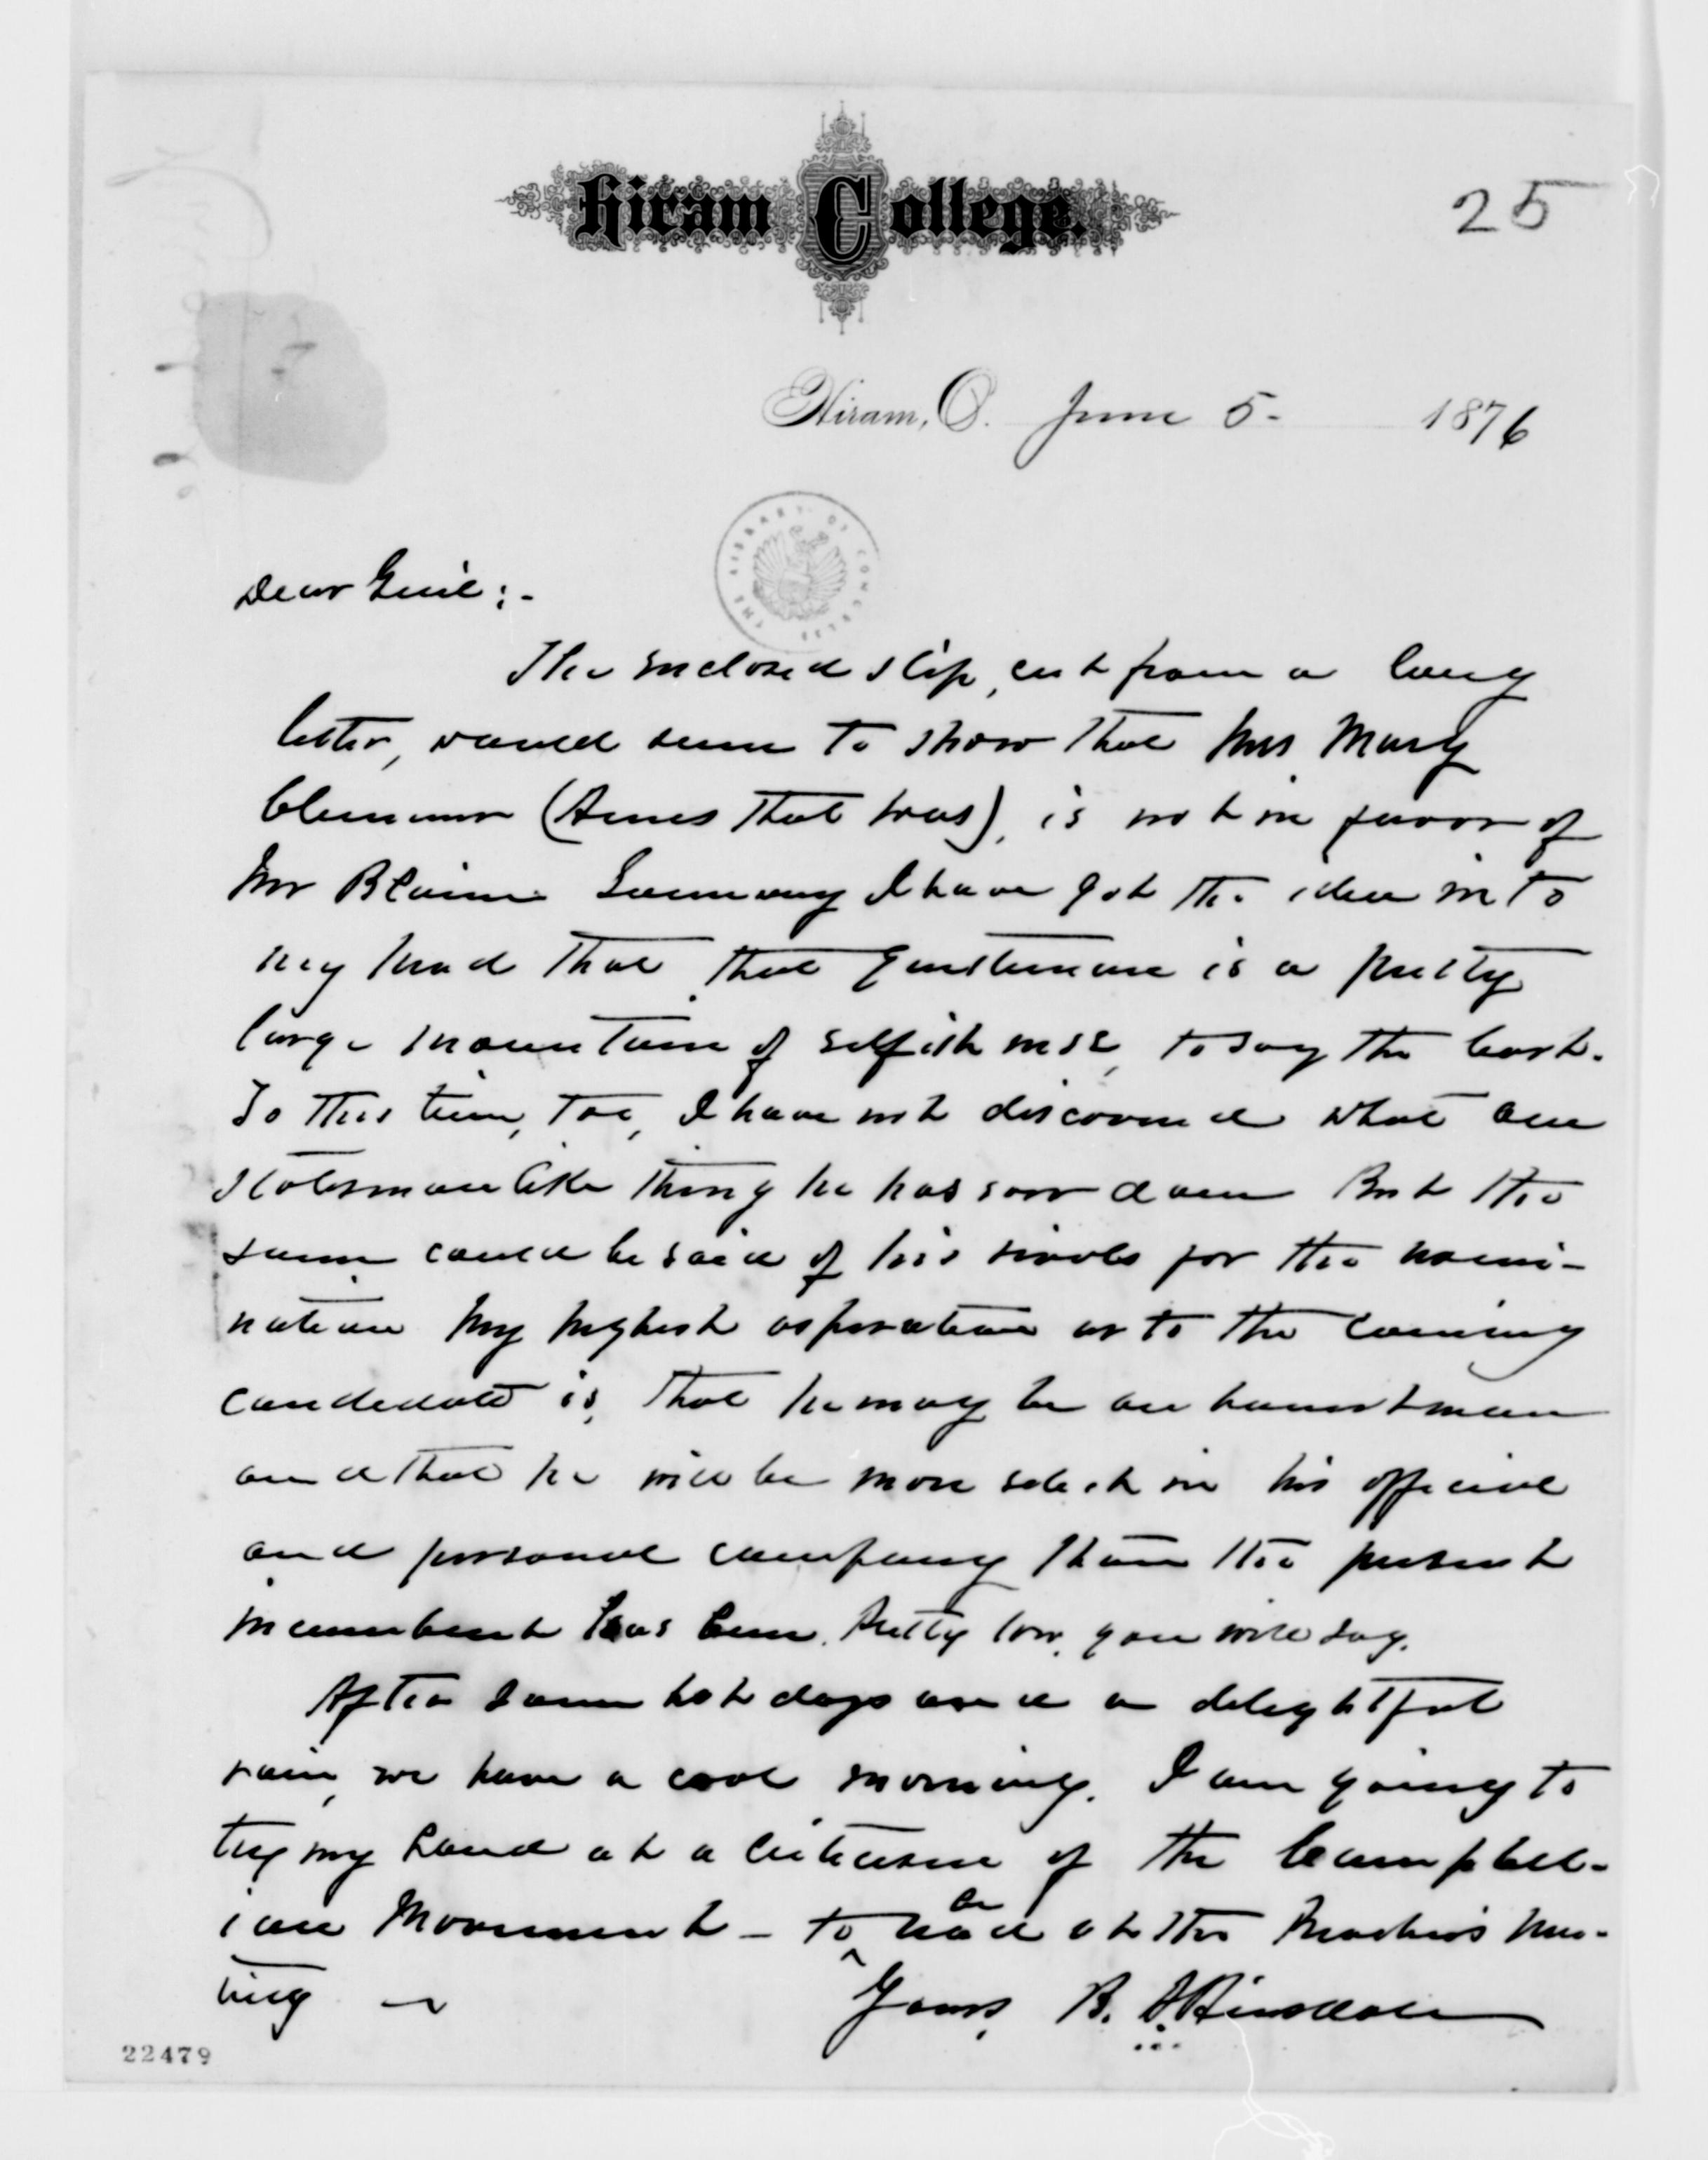 Hiram College.
25
Hiram, O. June 5- 1876
THE LIBRARY OF CONGRESS
Dear Genl:-
The enclosed slip, cut from a long
letter, would seem to show that Mrs Mary
Clemmer (Ames that was), is not in favor of
Mr Blaine. Some way I have got the idea into
my head that that gentleman is a pretty
large mountain of selfishness, to say the least.
To this time, too, I have not discovered what one
statesmanlike thing he has ever done. But the
same could be said of his rivals for the nomi-
nation. My highest aspiration as to the coming
candidate is, that he may be an honest man
and that he will be more select in his official
and personal company than the present
incumbent has been. Pretty low, you will say.
After some hot days and a delightful
rain, we have a cool morning. I am going to
try my hand at a criticism of the Campbell-
ian Movement - to be read at the Preacher's Mee-
ting -
Yours, B. A. Hinsdale
22479